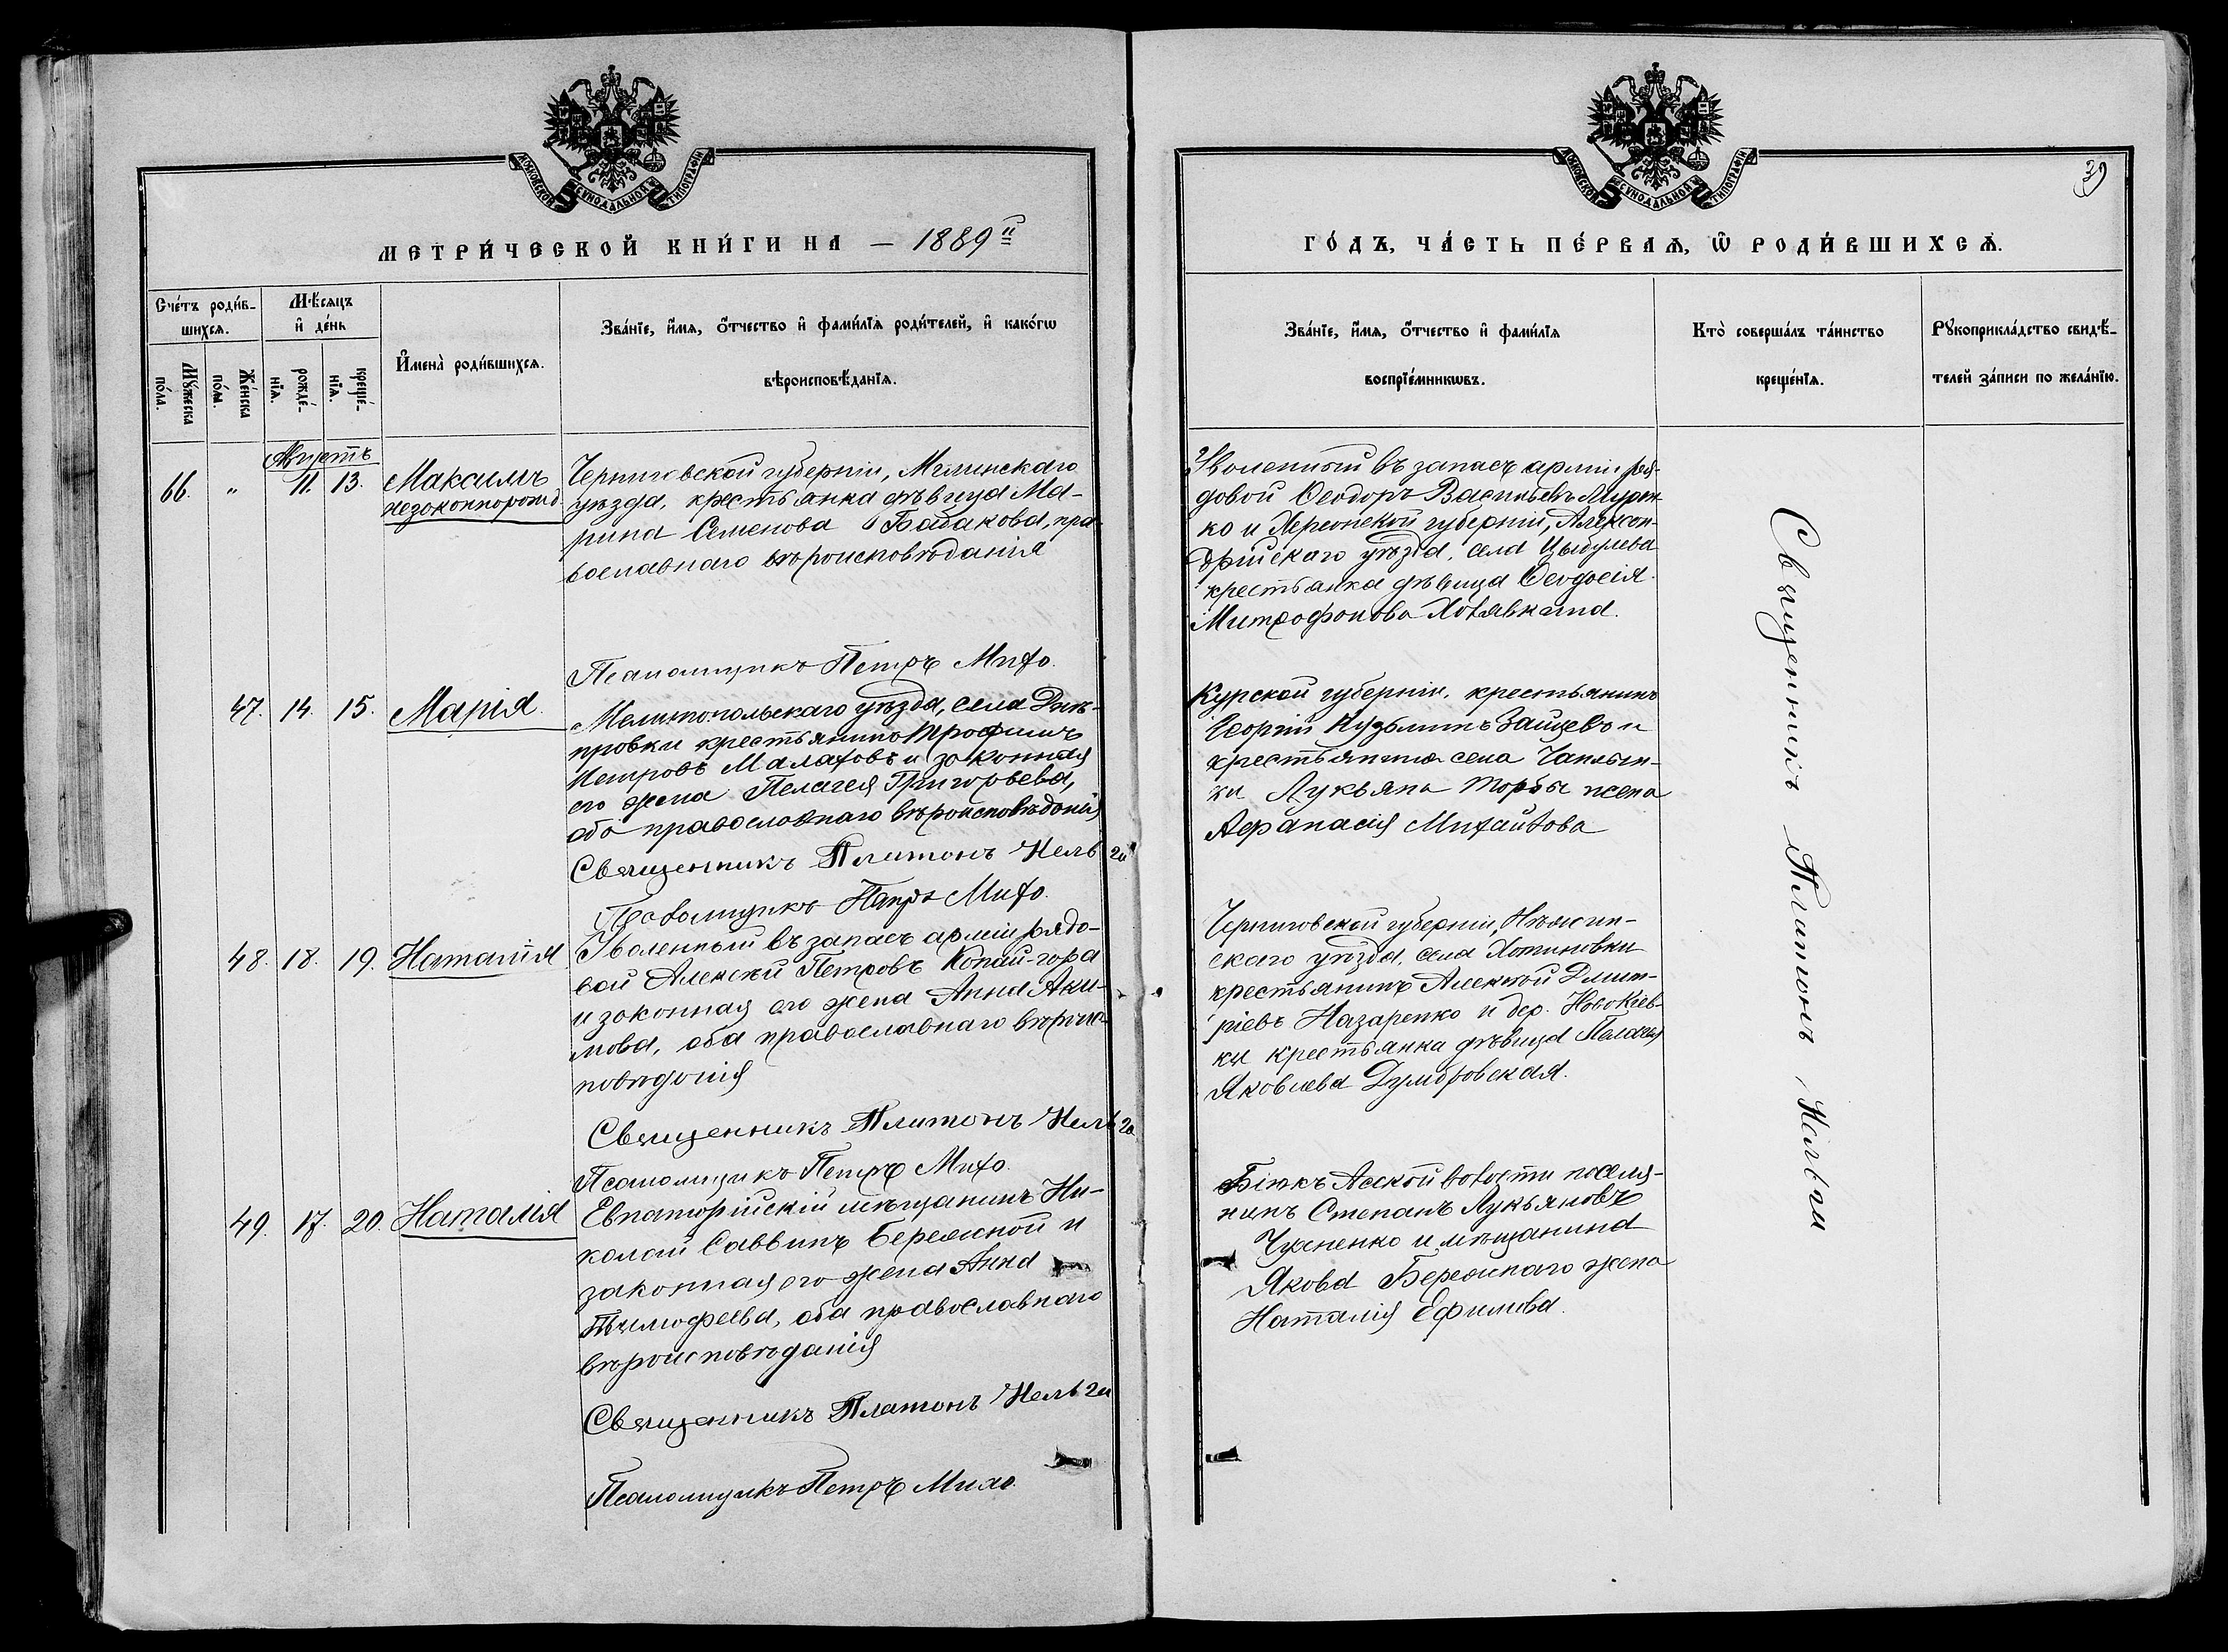 МОСКОВСКОЙ СѴНОДАЛЬНОЙ ТИПОГРАФІИ
МЕТРИ́ЧЕСКОЙ КНИ́ГИ НА — 1889й
Сче́тъ роди́в-
шихся.
Мꙋ́жеска
по́ла.
Же́нска
по́ла.
Мѣ́сяцъ
и҆ де́нь
рожде́-
нїѧ.
креще́-
нїѧ.
И҆мена̀ роди́вшихсѧ.
Зва́нїе, и҆́мѧ, ѻ҆́тчество и҆ фами́лїѧ роди́телей, и҆ како́гѡ
вѣроисповѣ́данїѧ.
Августъ
66. „ 11. 13.
Максимъ
незаконнорожд.
Черниговской губерніи, Мглинскаго
уѣзда, крестьянка дѣвица Ма-
рина Семенова Бабакова, пра-
вославнаго вѣроисповѣданія
Псаломщикъ Петръ Михо.
47. 14. 15. Марія.
Мелитопольскаго уѣзда, села Днѣ-
провки крестьянинъ Трофимъ
Петровъ Малаховъ и законная
его жена Пелагея Григорьева,
оба православнаго вѣроисповѣданія
Священникъ Платонъ Кельги
Псаломщикъ Петръ Михо.
48. 18. 19. Наталія
Уволенный въ запасъ арміи рядо-
вой Алексѣй Петровъ Копай-гора
и законная его жена Анна Аки-
мова, оба православнаго вѣроис-
повѣданія
Священникъ Платонъ Кельги
Псаломщикъ Петръ Михо.
49. 17. 20. Наталія
Евпаторійскій мѣщанинъ Ни-
колай Саввинъ Бережной и
законная его жена Анна
Тимофеева, оба православнаго
вѣроисповѣданія
Священникъ Платонъ Кельги
Псаломщикъ Петръ Михо.
МОСКОВСКОЙ СѴНОДАЛЬНОЙ ТИПОГРАФІИ
39
ГО́ДЪ, ЧА́СТЬ ПЕ́РВАѦ, Ѡ҆ РОДИ́ВШИХСѦ.
Зва́нїе, и҆́мѧ, ѻ҆́тчество и҆ фами́лїѧ
воспрїе́мникѡвъ.
Кто̀ соверша́лъ та́инство
креще́нїѧ.
Рꙋкоприкла́дство свидѣ́-
телей за́писи по жела́нїю.
Уволенный въ запасъ арміи ря-
довой Ѳеодоръ Васильевъ
ко и Херсонской губерніи, Александ-
дрійскаго уѣзда, села Цыбулева
крестьянка дѣвица Ѳеодосія
Митрофанова
Курской губерніи, крестьянинъ
Георгій Кузьминъ Зайцевъ и
крестьянина села Чаплын-
ки Лукьяна Торбы жена
Афанасія Михайлова
Черниговской губерніи, Нѣжин-
скаго уѣзда, села Хотиновки
крестьянинъ Алексѣй Дмит-
ріевъ Назаренко и дер. НовоКіев-
ки крестьянка дѣвица Пелагія
Яковлева Думбровская.
Біюкъ Асской волости поселя-
нинъ Степанъ Лукьяновъ
Чухненко и мѣщанина
Якова Бережнаго жена
Наталія Ефимова.
Священникъ Платонъ Кельги